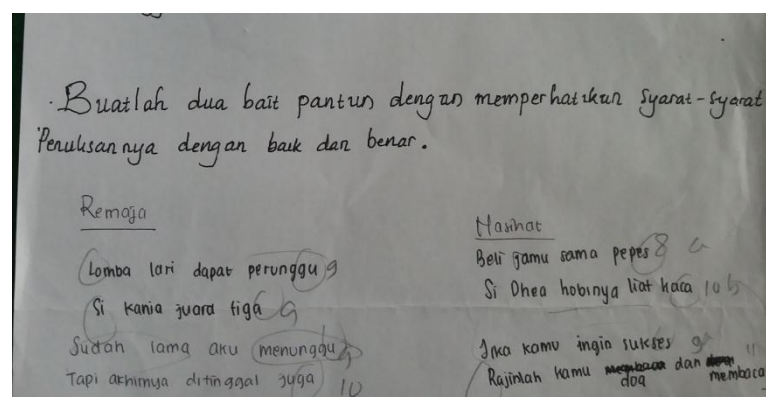 Buatlah dua bait pantun dengan memperhatikan syarat-syarat
Penulisannya dengan baik dan benar.
Remaja
Lomba lari dapat perunggu 9
Si kania juara tiga 9
Sudah lama aku menunggu 9
Tapi akhirnya ditinggal juga 10
Nasihat
Beli jamu sama pepes 8 a
Si Dhea hobinya liat kaca 10 b
Jika kamu ingin sukses 9 a
Rajinlah kamu doa dan membaca 11